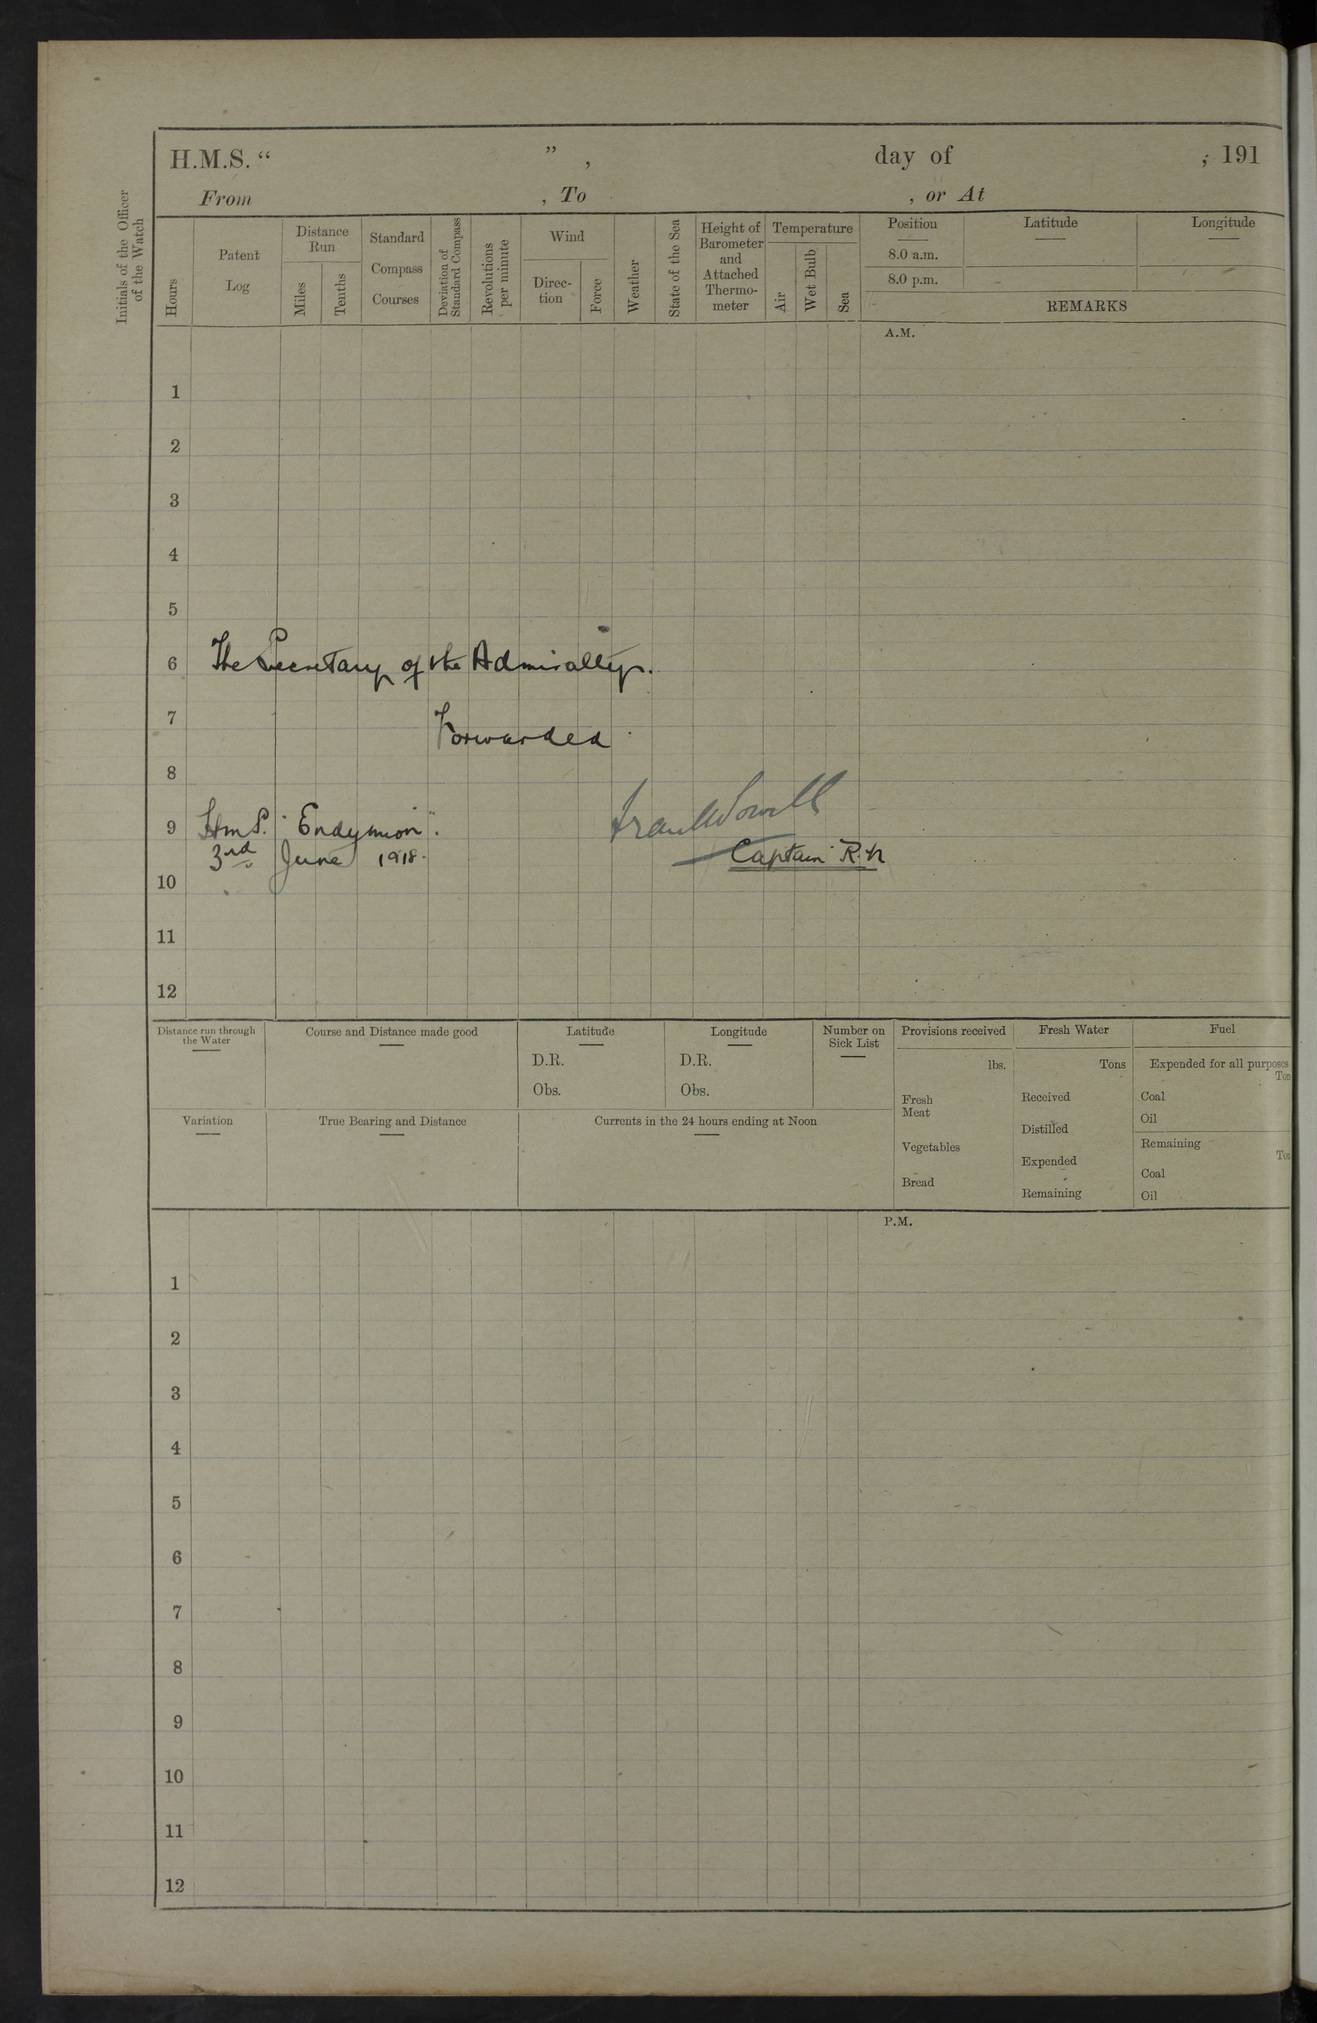 H.M.S. “ ” , day of , 191
From , To , or At
Initials of the Officer of the Watch
Hours
Patent Log
Distance Run
Miles
Tenths
Standard Compass Courses
Deviation of Standard Compass
Revolutions per minute
Wind
Direc-
tion
Force
Weather
State of the Sea
Height of
Barometer
and
Attached
Thermo-
meter
Temperature
Air
Wet Bulb
Sea
Position
Latitude
Longitude
8.0 a.m.
8.0 p.m.
REMARKS
A.M.
1
2
3
4
5
6
The Secretary of the Admiralty.
7
Forwarded
8
9
H.M.S. "Endymion".
3rd June 1918.
Captain R.N
10
11
12
Distance run through
the Water
Course and Distance made good
Latitude
D.R.
Obs.
Longitude
D.R.
Obs.
Number on
Sick List
Variation
True Bearing and Distance
Currents in the 24 hours ending at Noon
Provisions received
lbs.
Fresh
Meat
Vegetables
Bread
Fresh Water
Tons
Received
Distilled
Expended
Remaining
Fuel
Expended for all purposes
Ton
Coal
Oil
Remaining
Ton
Coal
Oil
P.M.
1
2
3
4
5
6
7
8
9
10
11
12